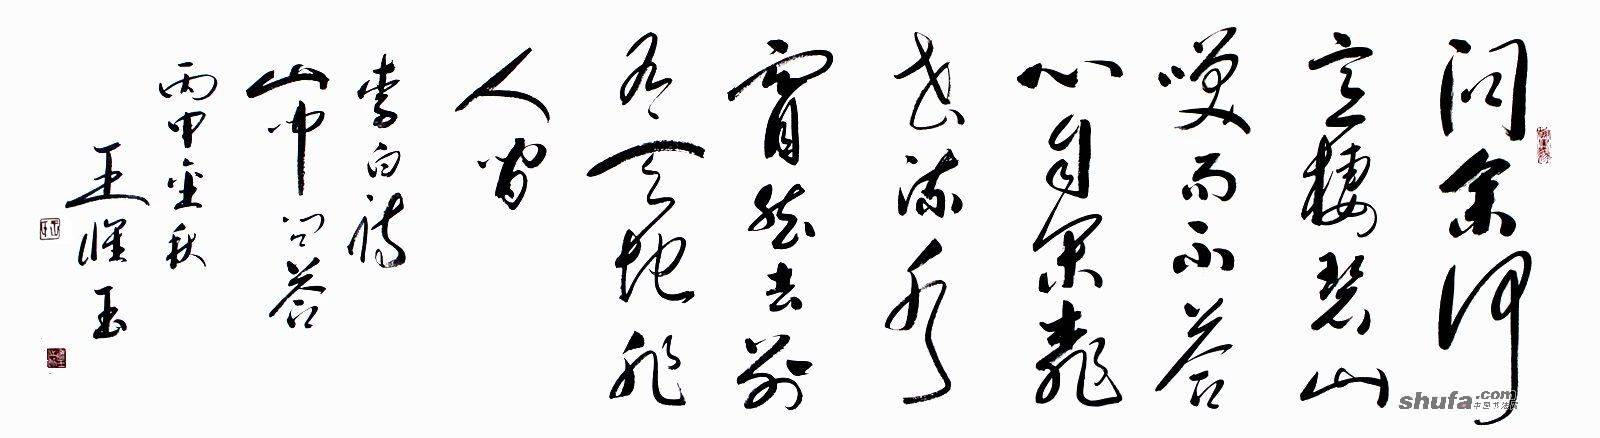 问余何
意栖碧山
笑而不答
心自闲桃
花流水
窅然去别
有天地非
人间
李白诗
山中问答
丙申金秋
王汉玉
shufa.com
中国书法网